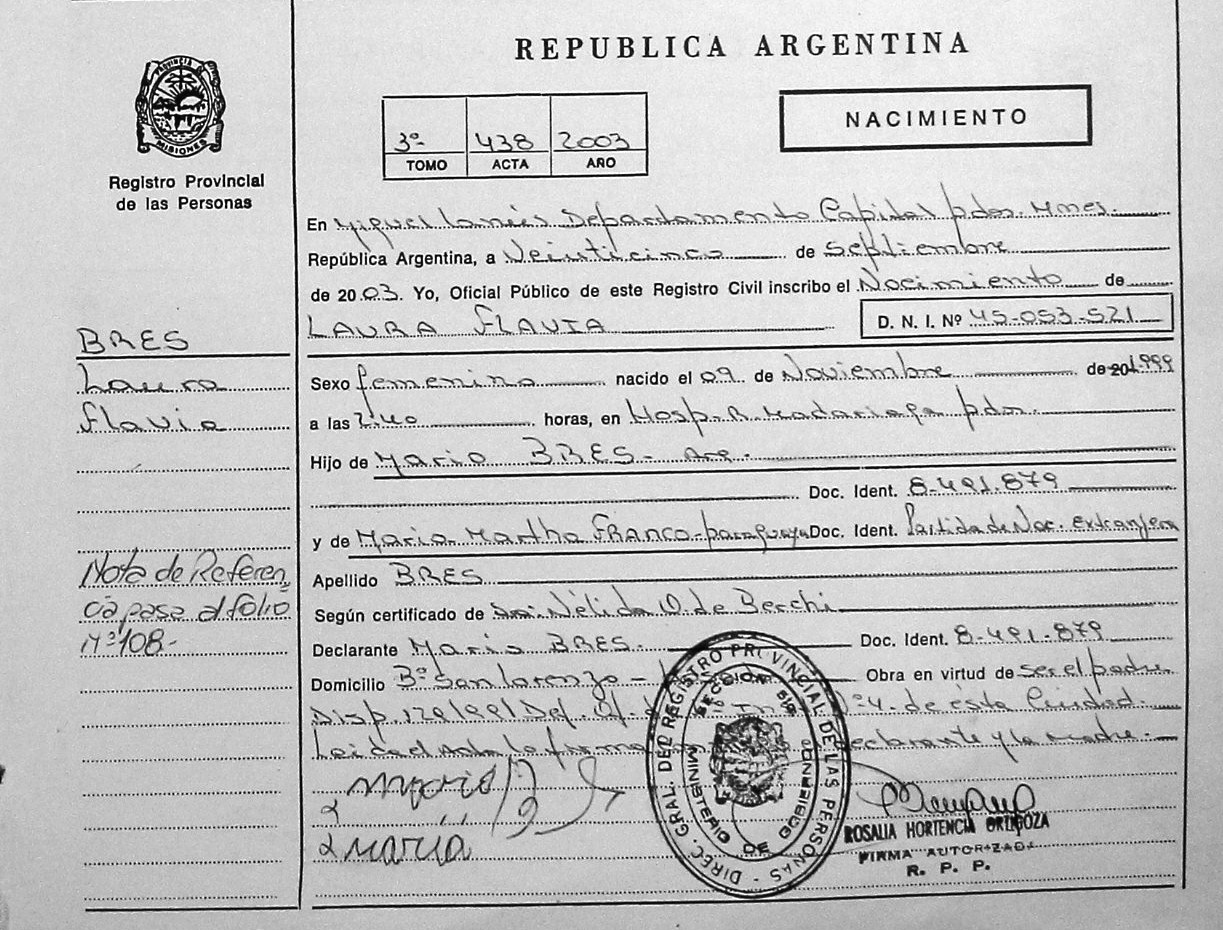 REPUBLICA ARGENTINA
PROVINCIA DE MISIONES
Registro Provincial
de las Personas
3º 438 2003
TOMO ACTA AÑO
NACIMIENTO
En Miguel Lanús Departamento Capital pdas. Mnes.
República Argentina, a Veinticinco de Septiembre
de 2003. Yo, Oficial Público de este Registro Civil inscribo el Nacimiento de
LAURA FLAVIA D. N. I. Nº 45-053-521
BRES
Laura
Flavia
Sexo femenino nacido el 09 de Noviembre de 1999
a las 2:40 horas, en Hosp. R. Madariaga pdas.
Hijo de Mario BRES - Arg.
Doc. Ident. 8-491-879
y de Maria Martha FRANCO - paraguaya Doc. Ident. Partida de Nac. extranjera
Nota de Referen
cia pasa al folio
Nº 108.-
Apellido BRES
Según certificado de Nélida de Berchi
Declarante Mario BRES. Doc. Ident. 8-491-879
Domicilio Bº San Lorenzo - Obra en virtud de ser el padre
Disp. Def. Of. Nº 4. de ésta Ciudad.
Leida el Acta la firma declarante y la madre.
DIREC. GRAL. DEL REGISTRO PROVINCIAL DE LAS PERSONAS
MINISTERIO DE GOBIERNO
maria
ROSALIA HORTENCIA ORTIGOZA
FIRMA AUTORIZADA
R. P. P.